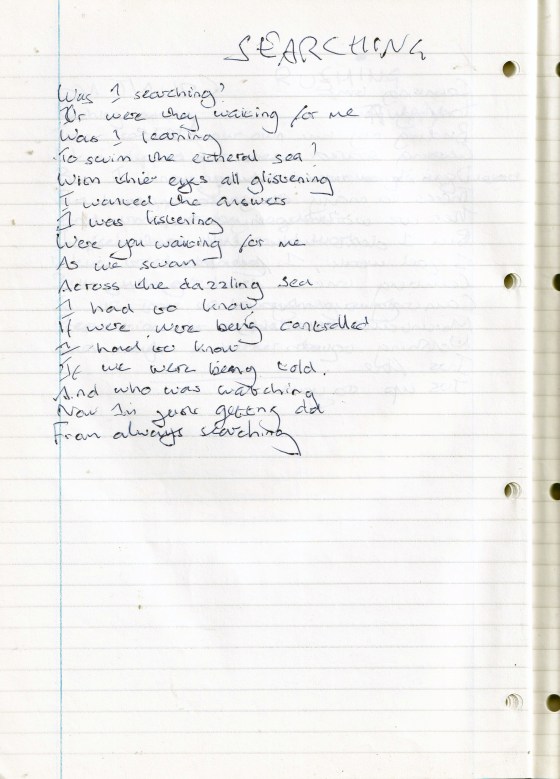 SEARCHING
Was I searching?
Or were they waiting for me
Was I learning
To swim the etheral sea?
With thier eyes all glistening
I wanted the answers
I was listening
Were you waiting for me
As we swam
Across the dazzling sea
I had to know
If were were being controlled
I had to know
If we were being told.
And who was watching
Now I'm just getting old
From always searching